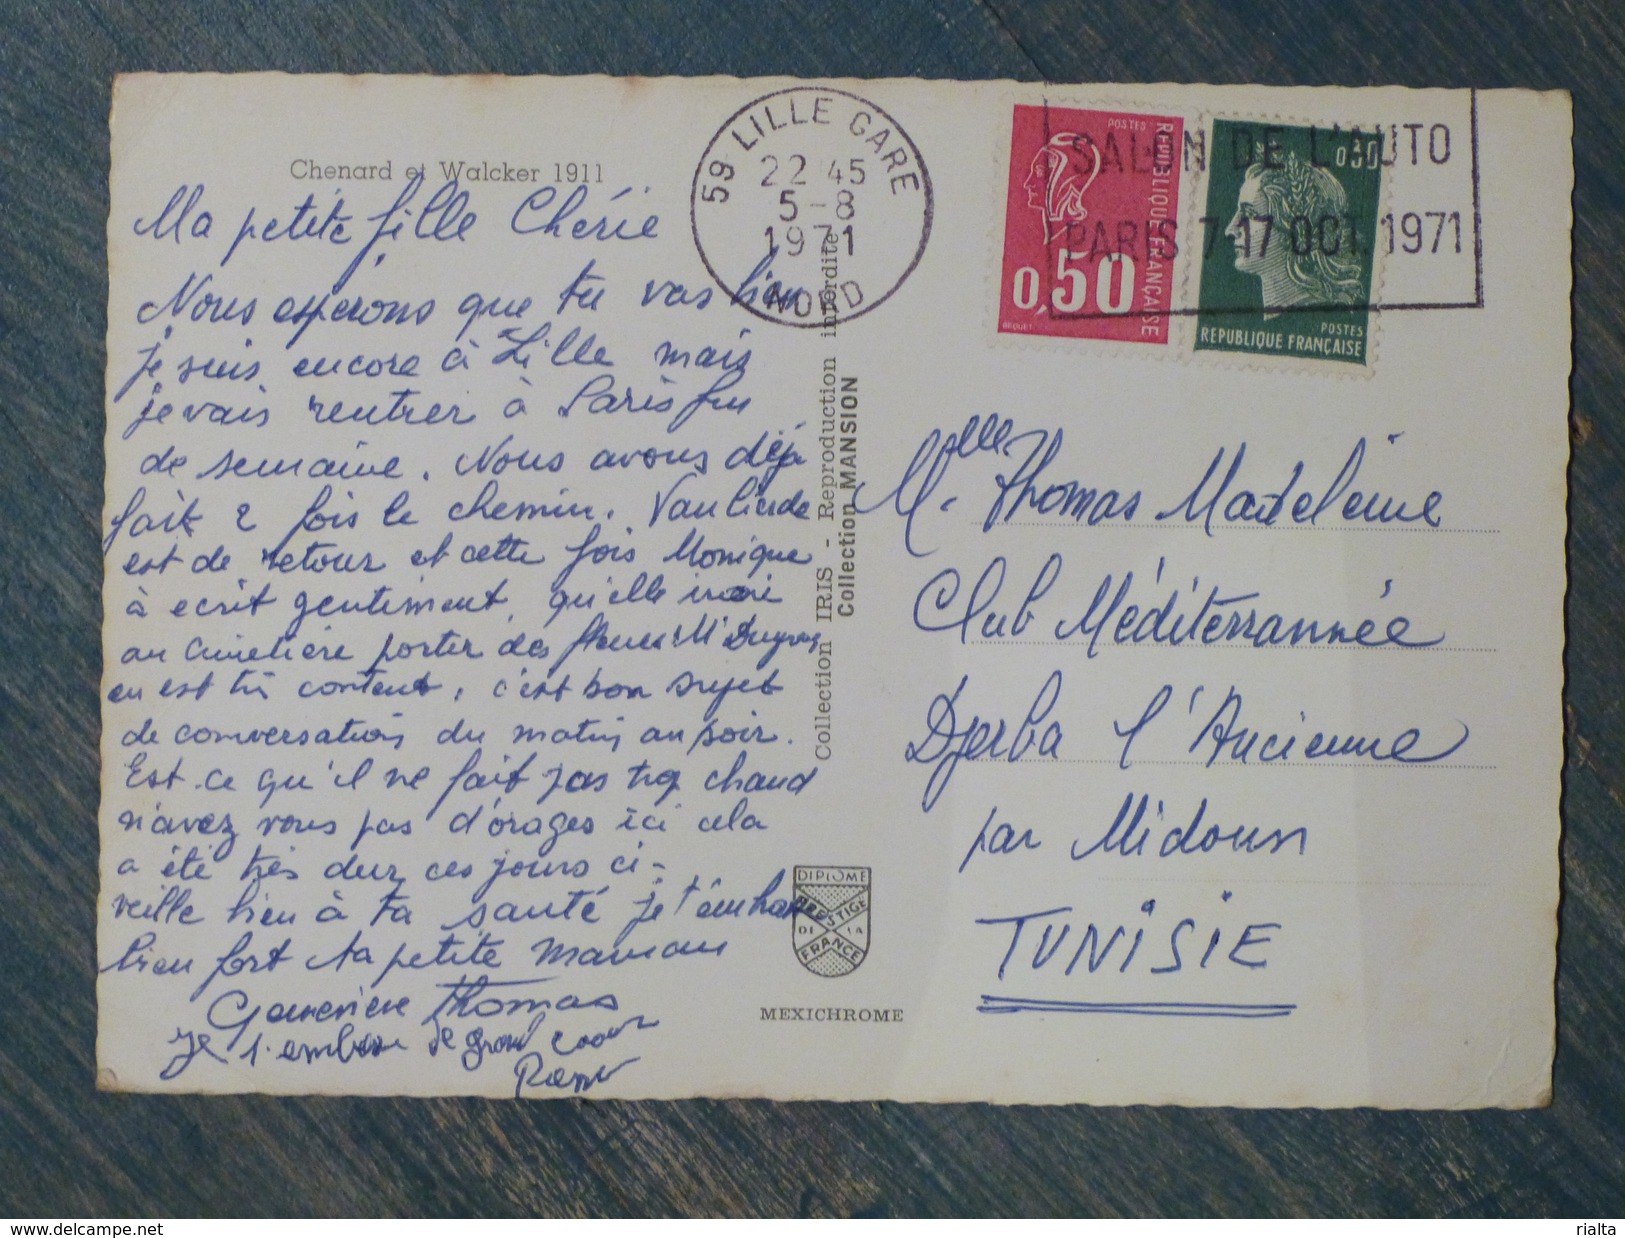 Chenard et Walcker 1911
Ma petite fille Chérie
Nous espérons que tu vas bien
je suis encore à Lille mais
je vais rentrer à Paris fin
de semaine. Nous avons déjà
fait 2 fois le chemin.
est de retour et cette fois Monique
à ecrit gentiment, qu'elle irai
au cimetière porter des fleurs
en est très content, c'est bon sujet
de conversation du matin au soir.
Est-ce qu'il ne fait pas trop chaud
n'avez vous pas d'orages ici cela
a été très dur ces jours ci -
veille bien à ta santé je t'embrasse
bien fort ta petite maman
Geneviève Thomas
Je t'embrasse de grand coeur
59 LILLE GARE
22 45
5-8
1971
NORD
SALON DE L'AUTO
PARIS 7-17 OCT. 1971
POSTES
REPUBLIQUE FRANÇAISE
0,50
BEQUET
0,30
POSTES
REPUBLIQUE FRANÇAISE
Collection IRIS - Reproduction interdite
Collection MANSION
DIPLOME
PRESTIGE
DE LA
FRANCE
MEXICHROME
Melle Thomas Madeleine
Club Méditerrannée
Djerba l'Ancienne
par Midoun
TUNISIE
www.delcampe.net
rialta